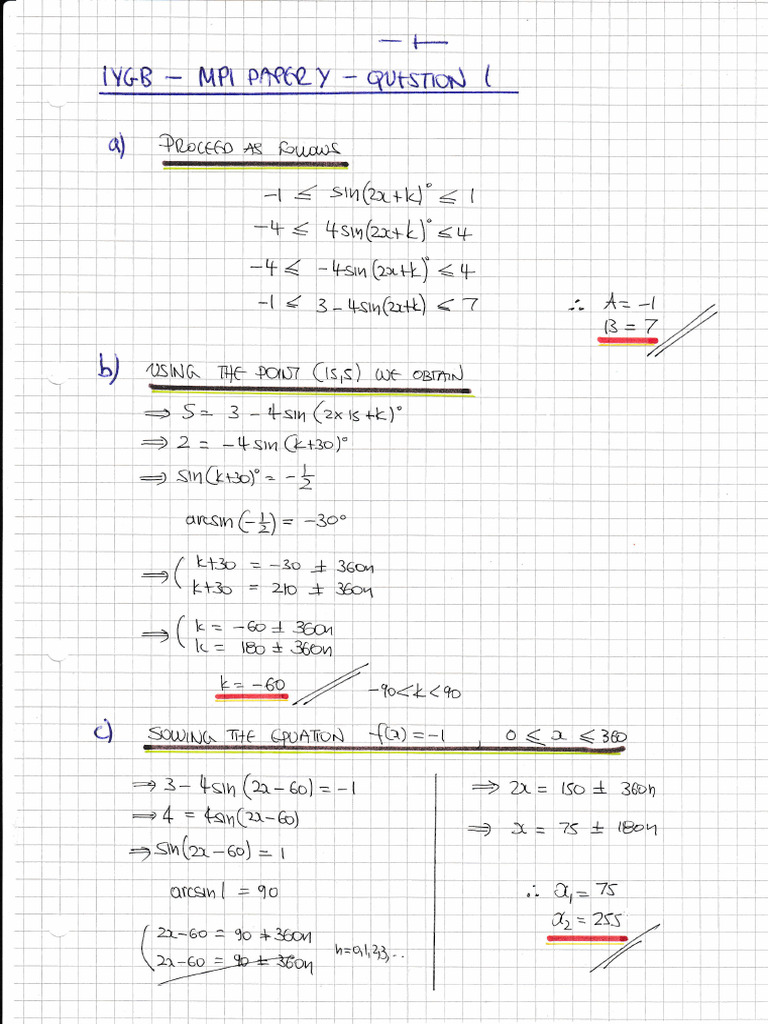 1
IYGB - MP1 PAPER Y - QUESTION 1
a) PROCEED AS FOLLOWS
-1 ≤ sin(2x+k)° ≤ 1
-4 ≤ 4sin(2x+k)° ≤ 4
-4 ≤ -4sin(2x+k)° ≤ 4
-1 ≤ 3 - 4sin(2x+k) ≤ 7
∴ A = -1
B = 7
b) USING THE POINT (15,5) WE OBTAIN
⇒ 5 = 3 - 4sin(2×15+k)°
⇒ 2 = -4sin(k+30)°
⇒ sin(k+30)° = -1/2
arcsin(-1/2) = -30°
⇒ ( k+30 = -30 ± 360n
k+30 = 210 ± 360n
⇒ ( k = -60 ± 360n
k = 180 ± 360n
k = -60 -90<k<90
c) SOLVING THE EQUATION f(x) = -1 , 0 ≤ x ≤ 360
⇒ 3 - 4sin(2x-60) = -1
⇒ 4 = 4sin(2x-60)
⇒ sin(2x-60) = 1
arcsin 1 = 90
( 2x-60 = 90 ± 360n
2x-60 = 90 ± 360n
n=0,1,2,3,...
⇒ 2x = 150 ± 360n
⇒ x = 75 ± 180n
∴ x₁ = 75
x₂ = 255